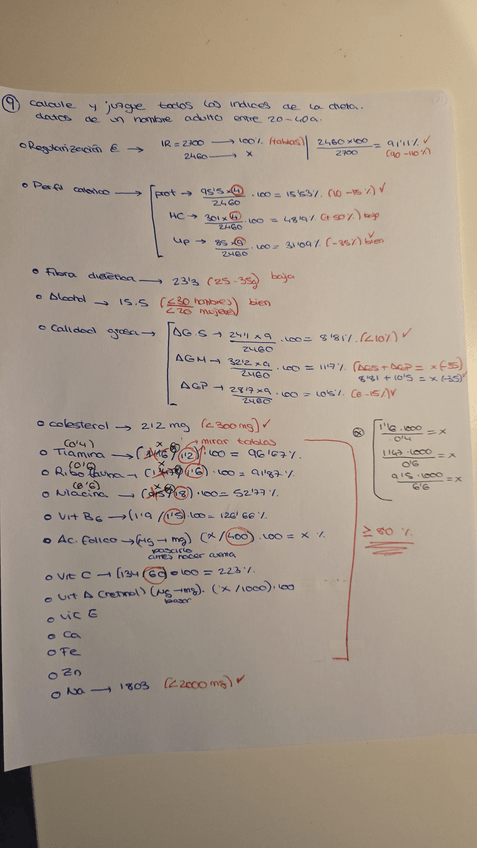 9 Calcule y juzgue todos los indices de la dieta.
datos de un hombre adulto entre 20-40a.
• Regularización E → IR = 2700 → 100% (tablas) | 2460 × 100 / 2700 = 91'11% ✓
2460 → x (90-110%)
• Perfil calórico → prot → 95'5 × 4 / 2460 · 100 = 15'53% (10-15%) ✓
HC → 301 × 4 / 2460 · 100 = 48'9% (+50%) bajo
Lip → 85 × 9 / 2460 · 100 = 31'09% (-35%) bien
• Fibra dietética → 23'3 (25-35g) baja
• Alcohol → 15.5 (≤30 hombres) bien
<20 mujeres
• Calidad grasa → AGS → 24'1 × 9 / 2460 · 100 = 8'81% (<10%) ✓
AGM → 32'2 × 9 / 2460 · 100 = 11'7% (AGS + AGP = x(-35)
8'81 + 10'5 = x (-35) ✓
AGP → 28'7 × 9 / 2460 · 100 = 10'5% (6-15%) ✓
• Colesterol → 212 mg (<300mg) ✓
(0'4) x → mirar tablas
• Tiamina → (1'16 / 1'2) · 100 = 96'67%
(0'6) x
• Riboflavina → (1'47 / 1'6) · 100 = 91'87%
(6'6) x
• Niacina → (9'5 / 18) · 100 = 52'77%
• Vit B6 → (1'9 / 1'5) · 100 = 126'66%
• Ac. fólico → (µg → mg) (x / 400) · 100 = x %
pasarlo
antes hacer cuenta
• Vit C → (134 / 60) · 100 = 223%
• Vit A (retinol) (µg → mg). (x / 1000) · 100
pasar
• Vit E
• Ca
• Fe
• Zn
• Na → 1803 (<2000 mg) ✓
x 1'16 · 1000 / 0'4 = x
1'47 · 1000 / 0'6 = x
9'5 · 1000 / 6'6 = x
≥ 80 %